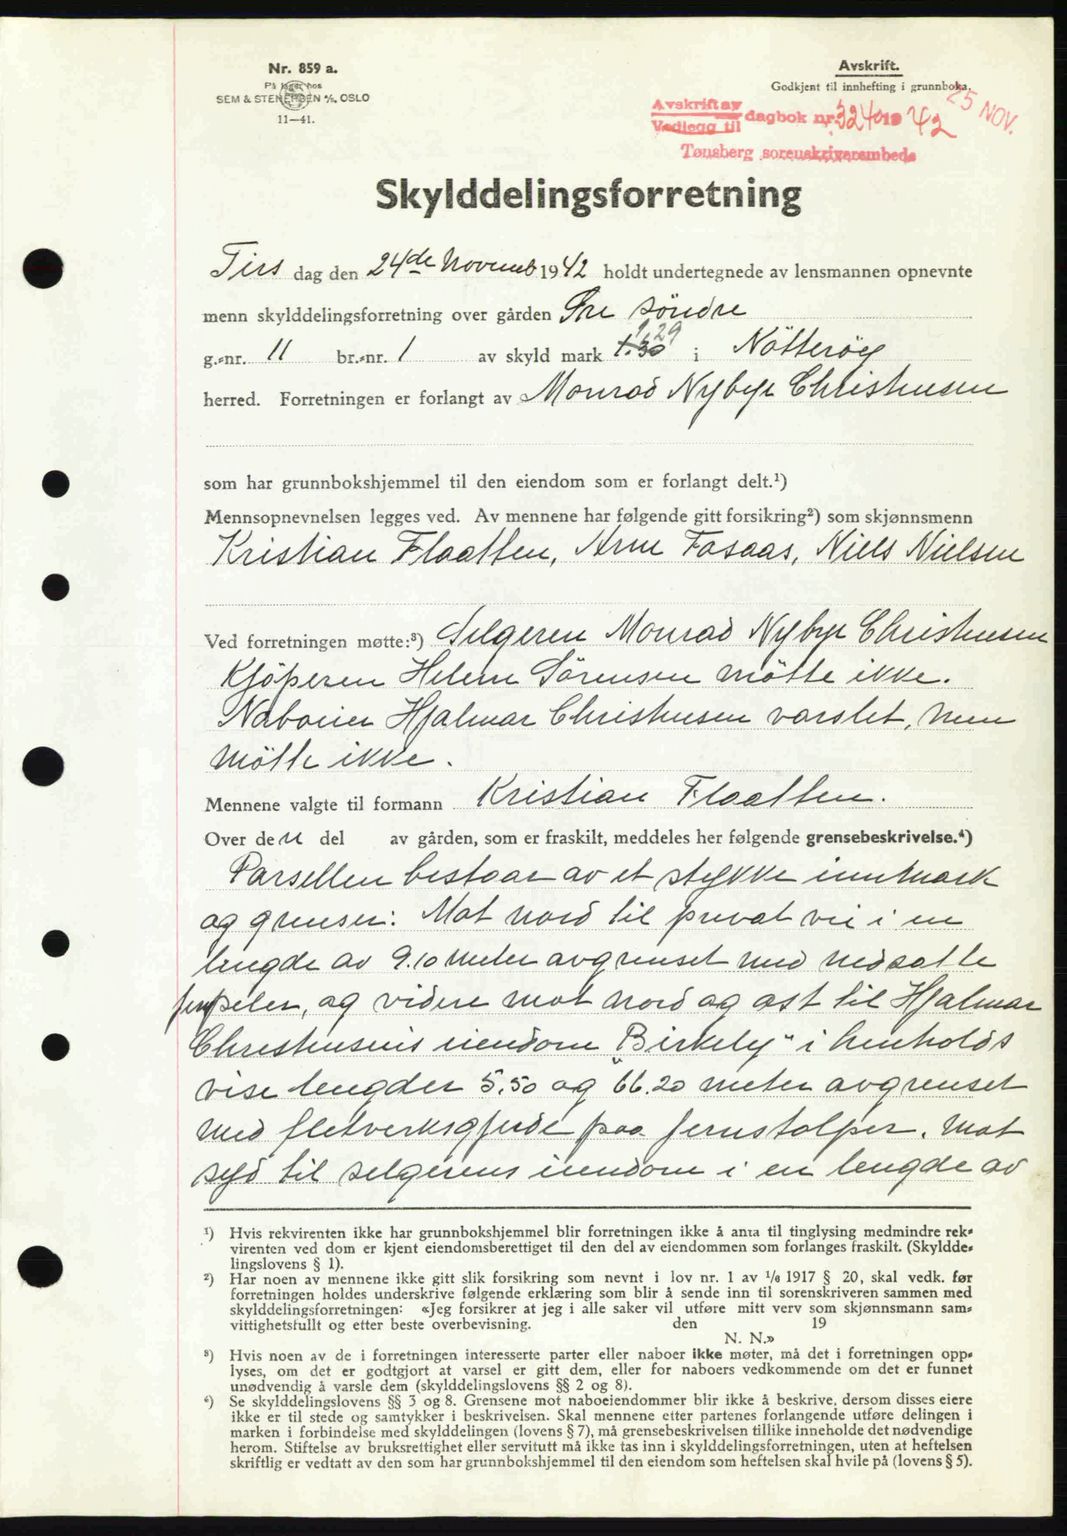 Nr. 859 a.
På lager hos
SEM & STENERSEN A/S, OSLO
11—41.
Avskrift.
Godkjent til innhefting i grunnboka.
25 NOV.
Avskrift av
Vedlegg til dagbok nr. 3240 19 42
Tønsberg sorenskriverembede
Skylddelingsforretning
Tirs dag den 24de Novemb 1942 holdt undertegnede av lensmannen opnevnte
menn skylddelingsforretning over gården Øre söndre
1,29
g.-nr. 11 br.-nr. 1 av skyld mark 1.30 i Nötteröy
herred. Forretningen er forlangt av Monrad Nybye Christensen
som har grunnbokshjemmel til den eiendom som er forlangt delt.¹)
Mennsopnevnelsen legges ved. Av mennene har følgende gitt forsikring²) som skjønnsmenn
Kristian Flaatten, Arne Fosaas, Niels Nielsen
Ved forretningen møtte:³) Selgeren Monrad Nybye Christensen
Kjöperen Helene Sörensen mötte ikke.
Naboeier Hjalmar Christensen varslet, men
mötte ikke.
Mennene valgte til formann Kristian Flaatten.
Over den del av gården, som er fraskilt, meddeles her følgende grensebeskrivelse.⁴)
Parsellen bestaar av et stykke innmark
og grenser: Mot nord til privat vei i en
lengde av 9.10 meter avgrenset med nedsatte
jernpeler, og videre mot nord og øst til Hjalmar
Christensens eiendom „Birkely" i henholds
vise lengder 5.50 og 66.20 meter avgrenset
med fletverksgjerde paa jernstolper. mot
syd til selgerens eiendom i en lengde av
¹) Hvis rekvirenten ikke har grunnbokshjemmel blir forretningen ikke å anta til tinglysing medmindre rek-
virenten ved dom er kjent eiendomsberettiget til den del av eiendommen som forlanges fraskilt. (Skyldde-
lingslovens § 1).
²) Har noen av mennene ikke gitt slik forsikring som nevnt i lov nr. 1 av 1/6 1917 § 20, skal vedk. før
forretningen holdes underskrive følgende erklæring som blir å sende inn til sorenskriveren sammen med
skylddelingsforretningen: «Jeg forsikrer at jeg i alle saker vil utføre mitt verv som skjønnsmann sam-
vittighetsfullt og etter beste overbevisning. den 19
N. N.»
³) Hvis noen av de i forretningen interesserte parter eller naboer ikke møter, må det i forretningen opp-
lyses, om det er godtgjort at varsel er gitt dem, eller for naboers vedkommende om det er funnet
unødvendig å varsle dem (skylddelingslovens §§ 2 og 8).
⁴) Se skylddelingslovens §§ 3 og 8. Grensene mot naboeiendommer blir ikke å beskrive, dersom disses eiere
ikke er til stede og samtykker i beskrivelsen. Skal mennene etter partenes forlangende utføre delingen i
marken i forbindelse med skylddelingen (lovens § 7), må grensebeskrivelsen tillike inneholde det nødvendige
herom. Stiftelse av bruksrettighet eller servitutt må ikke tas inn i skylddelingsforretningen, uten at heftelsen
skriftlig er vedtatt av den som har grunnbokshjemmel til den eiendom som heftelsen skal hvile på (lovens § 5).